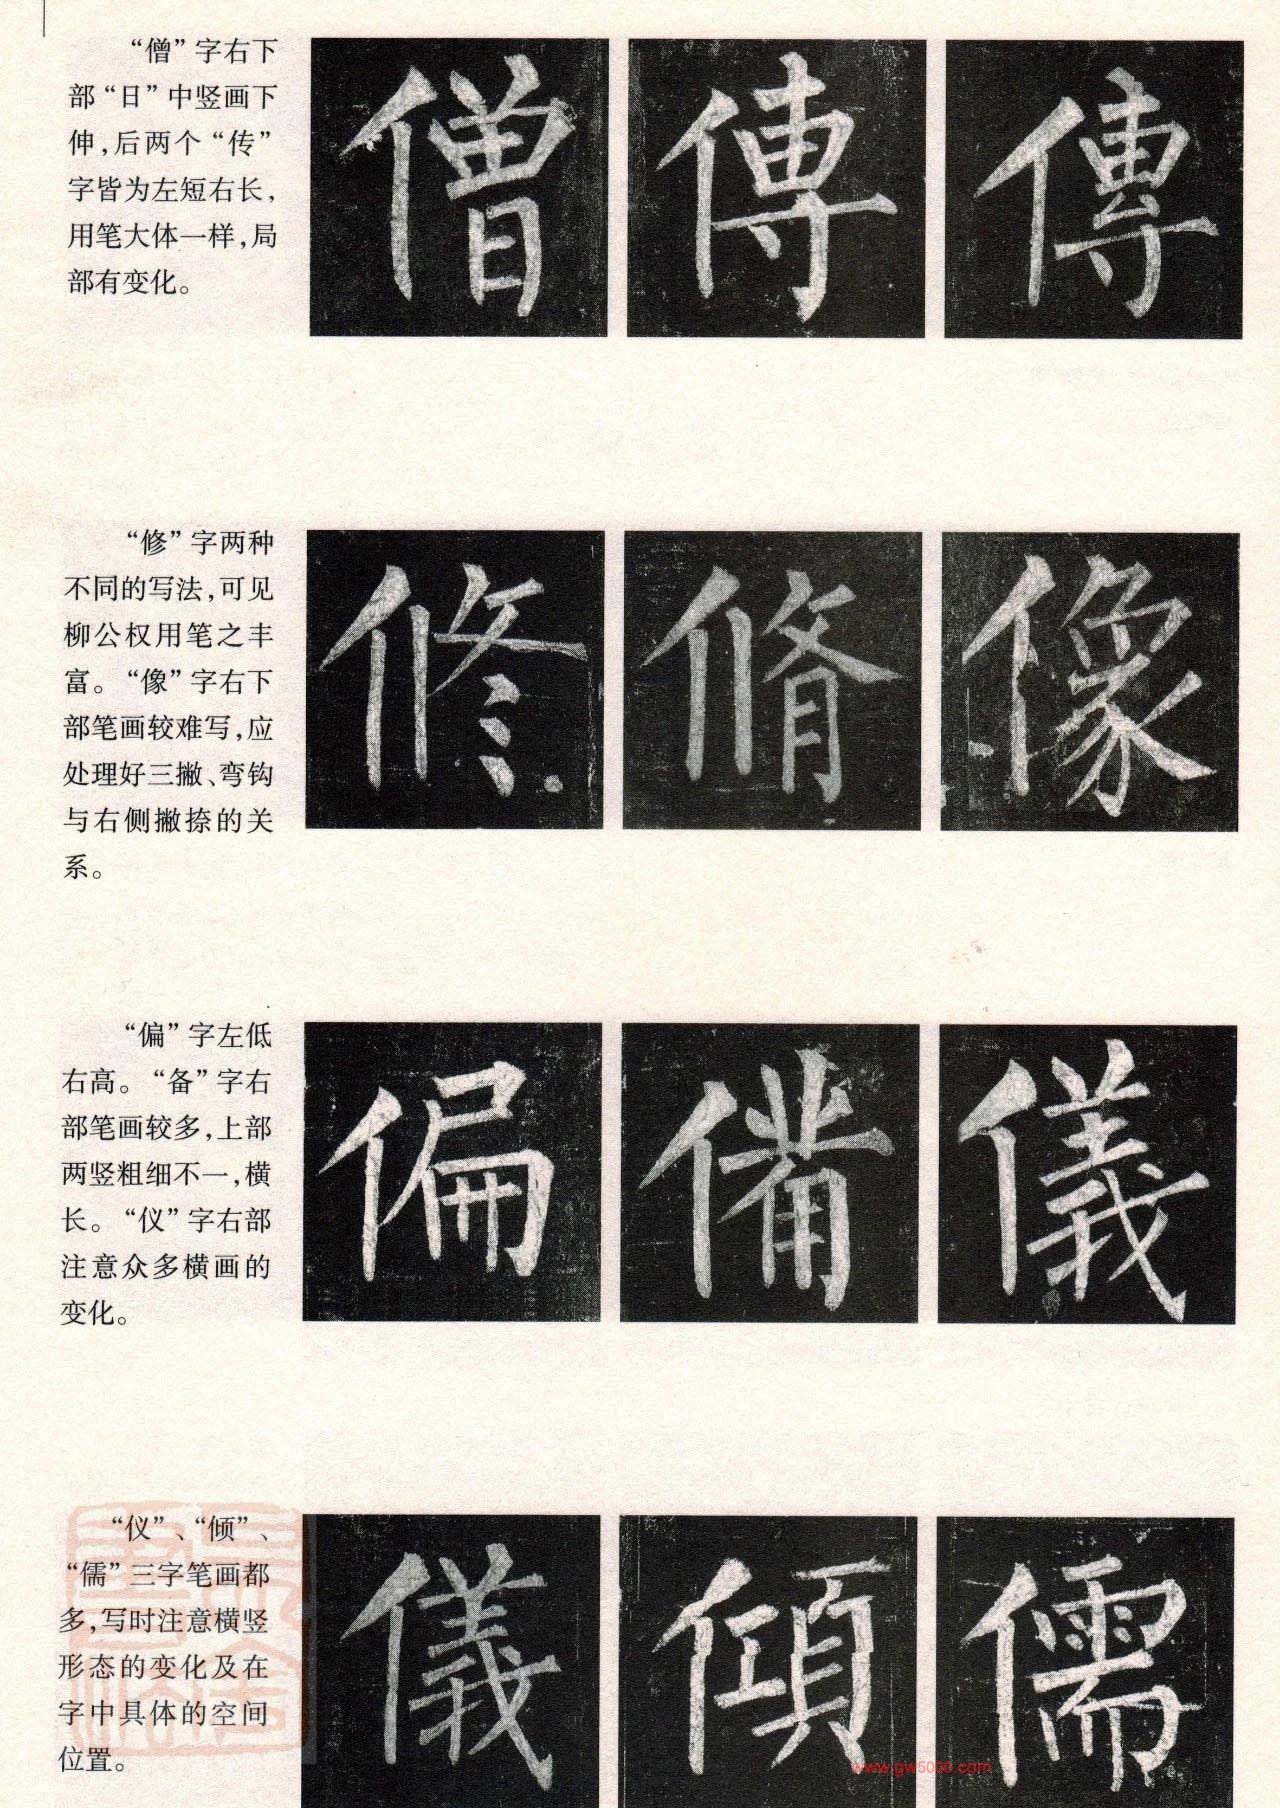 “僧”字右下
部“日”中竖画下
伸，后两个“传”
字皆为左短右长，
用笔大体一样，局
部有变化。
僧 傳 傳
“修”字两种
不同的写法，可见
柳公权用笔之丰
富。“像”字右下
部笔画较难写，应
处理好三撇、弯钩
与右侧撇捺的关
系。
修 脩 像
“偏”字左低
右高。“备”字右
部笔画较多，上部
两竖粗细不一，横
长。“仪”字右部
注意众多横画的
变化。
偏 備 儀
“仪”、“倾”、
“儒”三字笔画都
多，写时注意横竖
形态的变化及在
字中具体的空间
位置。
儀 傾 儒
www.gw5000.com